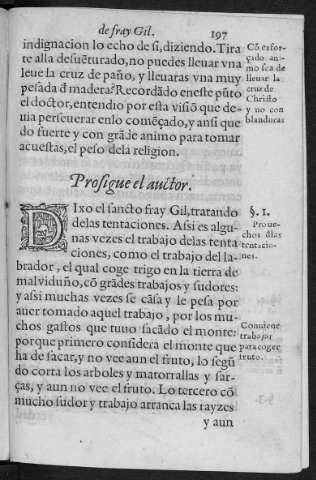 de fray Gil. 197
indignacion lo echo de si, diziendo. Tira
te alla desuẽturado, no puedes lleuar vna
leue la cruz de paño, y lleuaras vna muy
pesada đ madera? Recordãdo eneste pũto
el doctor, entendio por esta visiõ que de-
uia perseuerar enlo comẽçado, y ansi que
do fuerte y con grãde animo para tomar
acuestas, el peso dela religion.
Cõ esfor-
çado ani-
mo sea de
lleuar la
cruz de
Christo
y no con
blanduras
Prosigue el auctor.
DIxo el sancto fray Gil, tratando
delas tentaciones. Assi es algu-
nas vezes el trabajo delas tenta
ciones, como el trabajo del la-
brador, el qual coge trigo en la tierra de
malviduño, cõ grãdes trabajos y sudores:
y assi muchas vezes se cãsa y le pesa por
auer tomado aquel trabajo, por los mu-
chos gastos que tuuo sacãdo el monte:
porque primero considera el monte que
ha de sacar, y no vee aun el fruto, lo segũ
do corta los arboles y matorrallas y sar-
ças, y aun no vee el fruto. Lo tercero cõ
mucho sudor y trabajo arranca las rayzes
y aun
§. 1.
Proue-
chos đlas
tentacio-
nes.
Conuiene
trabajar
para coger
fruto.